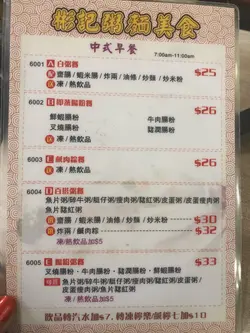 粥麵美食
中式早餐
7:00am-11:00am
6001 A 白粥餐 $25
配 齋腸/蝦米腸/炸兩/油條/炒麵/炒米粉
送 凍/熱飲品
6002 B 即蒸腸粉餐 $26
鮮蝦腸粉 牛肉腸粉
叉燒腸粉 豬潤腸粉
送 凍/熱飲品
6003 C 鹹肉糉餐 $26
送 凍/熱飲品
6004 D
魚片粥/碎牛粥/艇仔粥/瘦肉粥/豬紅粥/皮蛋粥/皮蛋瘦肉粥
魚片豬紅粥
齋腸/蝦米腸/油條/炒麵/炒米粉 $30
炸兩/鹵肉糉 $32
凍/熱飲品加$5
6005 E $33
叉燒腸粉、牛肉腸粉、豬潤腸粉、鮮蝦腸粉
魚片粥/碎牛粥/艇仔粥/瘦肉粥/豬紅粥/皮蛋粥
/皮蛋瘦肉粥/魚片豬紅粥 凍/熱飲品加$5
飲品轉汽水加$7, 轉凍檸樂/鹹檸七加$10